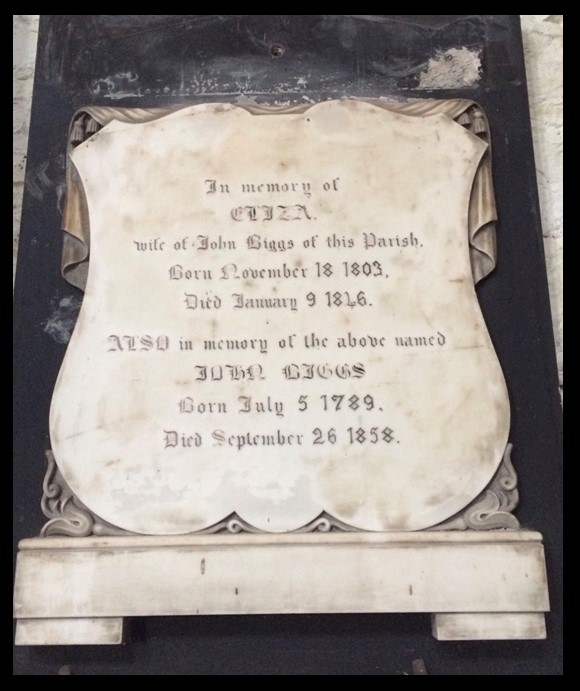 In memory of
ELIZA.
wife of John Biggs of this Parish,
Born November 18 1803,
Died January 9 1846.
ALSO in memory of the above named
JOHN BIGGS
Born July 5 1789.
Died September 26 1858.